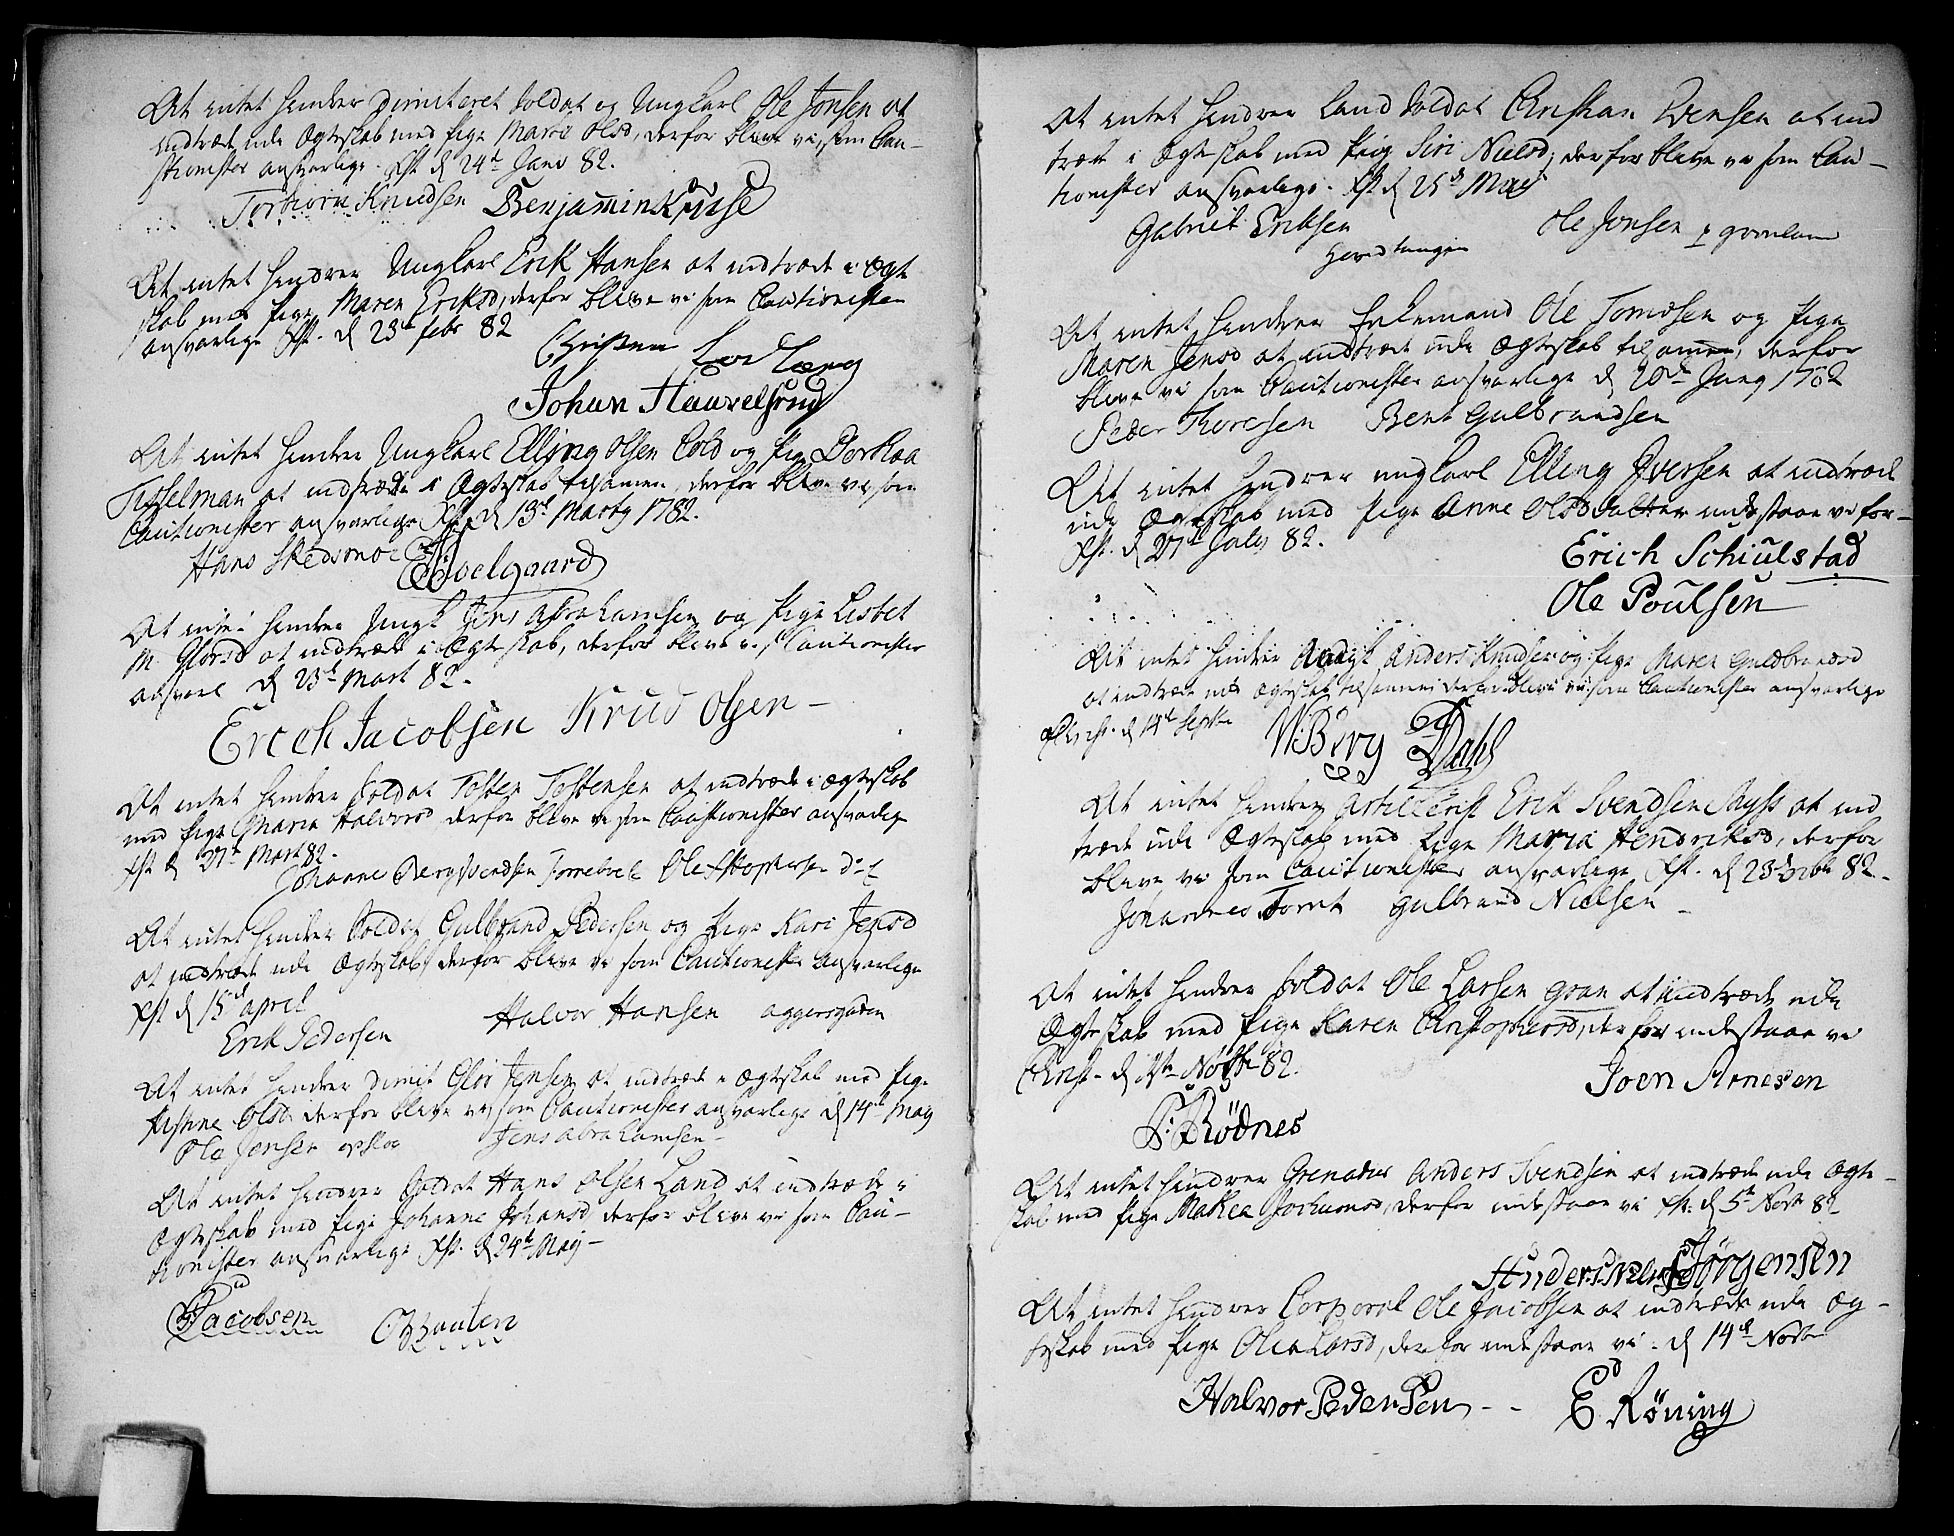 At intet hindrer Dimiteret Soldat og Ungkarl Ole Jonsen at
indtræde udi Ægteskab med Pige Marie Olsd, derfor bleve vi som Cau-
tionister ansvarlige. Xst d 24de Janv 82.
Torbiorn Knudsen Benjamin Kruse
At intet hindrer Ungkarl Erik Hansen at indtræde i Ægt
skab med Pige Maren Eriksd, derfor bleve vi som Cautionister
ansvarlige Xst. d 23de febr 82
Christen
Johan Haavelsrud
At intet hindrer Ungkarl Elling Olsen Cold og Pige Dorthea
Tisselman at indtræde i Ægteskab tilsamen, derfor bleve vi som
Cautionister ansvarlige Xst d 13de Marty 1782.
Hans Skedsmoe
At intet hindrer Ungk Jens Abrahamsen og Pige Lisbet
M. Glorsd at indtræde i Ægteskab, derfor bleve vi Cautionister
ansvarl d 23de Mart 82.
Erich Jacobsen Knud Olsen -
At intet hindrer Soldat Tosten Tostensen at indtræde i Ægteskab
med Pige Maria Halvorsd, derfor bleve vi som Cautionister ansvarlige
Xst d 27de Mart 82.
Johannes Bergsvendsen Ole
At intet hindrer Soldat Gulbrand Pedersen og Pige Kari Jensd
at indtræde udi Ægteskab, derfor bleve vi som Cautionister ansvarlige
Xst d 15de april
Erik Pedersen Halvor Hansen
At intet hindrer Dimit Glor Jensen at indtræde i Ægteskab med Pige
Kistine Olsd. derfor bleve vi som Cautionister ansvarlige d 14de May
Ole Jensen Jens Abrahamsen -
At intet hindrer Soldat Hans Olsen Land at indtræde i
Ægteskab med Pige Johanne Johansd, derfor bleve vi som Cau-
tionister ansvarlige Xst. d 24de May -
Jacobsen
At intet hindrer Land Soldat Christian Wensen at ind
træde i Ægteskab med Pige Siri Nielsd, derfor bleve vi som Cau-
tionister ansvarlige. Xst d 25de May
Gabriel Eriksen Ole Jonsen
At intet hindrer Enkemand Ole Tomesen og Pige
Maren Jensd at indtræde udi Ægteskab tilsamen, derfor
bleve vi som Cautionister ansvarlige d 20de Juny 1782
Peder Thoresen Bent Gulbrandsen
At intet hindrer ungkarl Elling Iversen at indtræde
udi Ægteskab med Pige Anne Olsd indestaae vi for-
Xst. d 27de July 82.
Erich Schiulstad
Ole Poulsen
At intet hindrer Anders Knudsen og Pige Maren Guldbrandsd
at indtræde udi Ægteskab tilsammen derfor bleve vi som Cautionister ansvarlige
d 14de Septbr
N: Berg Dahl
At intet hindrer Artillerist Erik Svendsen at ind
træde udi Ægteskab med Pige Maria Hendriksd, derfor
bleve vi som Cautionister ansvarlige Xst. d 23 82.
Johannes Tomt Gulbrand Nielsen -
At intet hindrer Soldat Ole Larsen Gran at indtræde udi
Ægteskab med Pige Karen Christophersd, derfor indestaae vi
Christ. d Novbr 82.
Joen Arnesen
P: Rödnes
At intet hindrer Grenader Anders Svendsen at indtræde udi Ægte-
skab med Pige Mathea Jochumsd, derfor indestaae vi Xst: d 5te Novbr 82
Anders Jörgensen
At intet hindrer Corporal Ole Jacobsen at indtræde udi Æg-
teskab med Pige Olea Larsd, derfor indestaae vi. d 14de Novbr
Halvor Pedersen - - E. Röning